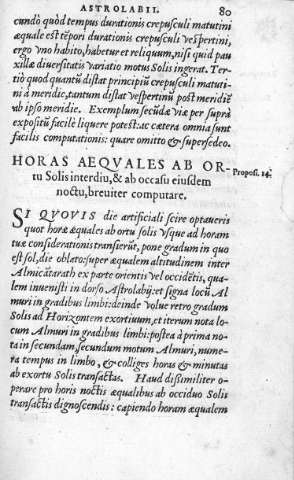 ASTROLABII. 80
cundò quòd tempus durationis crepusculi matutini
æquale est tẽpori durationis crepusculi vespertini,
ergo vno habito, habetur et reliquum, nisi quid pau
xillæ diuersitatis variatio motus Solis ingerat. Ter-
tiò quod quantũ distat principiũ crepusculi matuti-
ni à meridie, tantum distat vespertinũ post meridiẽ
ab ipso meridie. Exemplum secũdæ viæ per suprà
expositũ facilè liquere potest: ac cætera omnia sunt
facilis computationis: quare omitto & supersedeo.
HORAS AEQVALES AB OR-
tu Solis interdiu, & ab occasu eiusdem
noctu, breuiter computare.
Proposi. 14.
SI QVOVIS die artificiali scire optaueris
quot horæ æquales ab ortu solis vsque ad horam
tuæ considerationis transierũt, pone gradum in quo
est sol, die oblato: super æqualem altitudinem inter
Almicãtarath ex parte orientis vel occidẽtis, qua-
lem inuenisti in dorso Astrolabij: et signa locũ Al
muri in gradibus limbi: deinde volue retro gradum
Solis ad Horizontem exortium, et iterum nota lo-
cum Almuri in gradibus limbi: postea à prima no-
ta in secundam, secundum motum Almuri, nume-
ra tempus in limbo, & colliges horas & minutas
ab exortu Solis transactas. Haud dißimiliter o-
perare pro horis noctis æqualibus ab occiduo Solis
transactis dignoscendis: capiendo horam æqualem